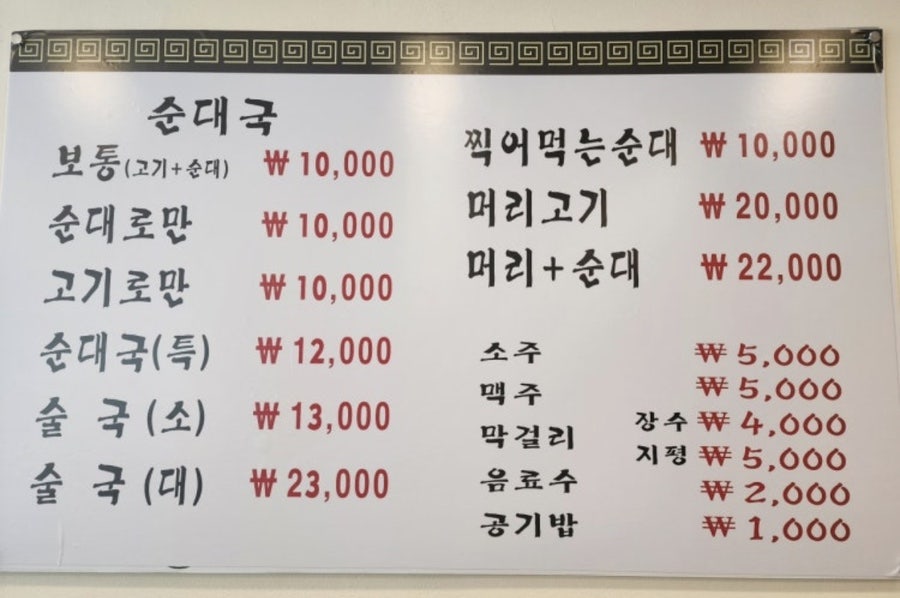 순대국
보통(고기+순대) ₩10,000
순대로만 ₩10,000
고기로만 ₩10,000
순대국(특) ₩12,000
술 국(소) ₩13,000
술 국(대) ₩23,000
찍어먹는순대 ₩10,000
머리고기 ₩20,000
머리+순대 ₩22,000
소주 ₩5,000
맥주 ₩5,000
막걸리 장수 ₩4,000
지평 ₩5,000
음료수 ₩2,000
공기밥 ₩1,000